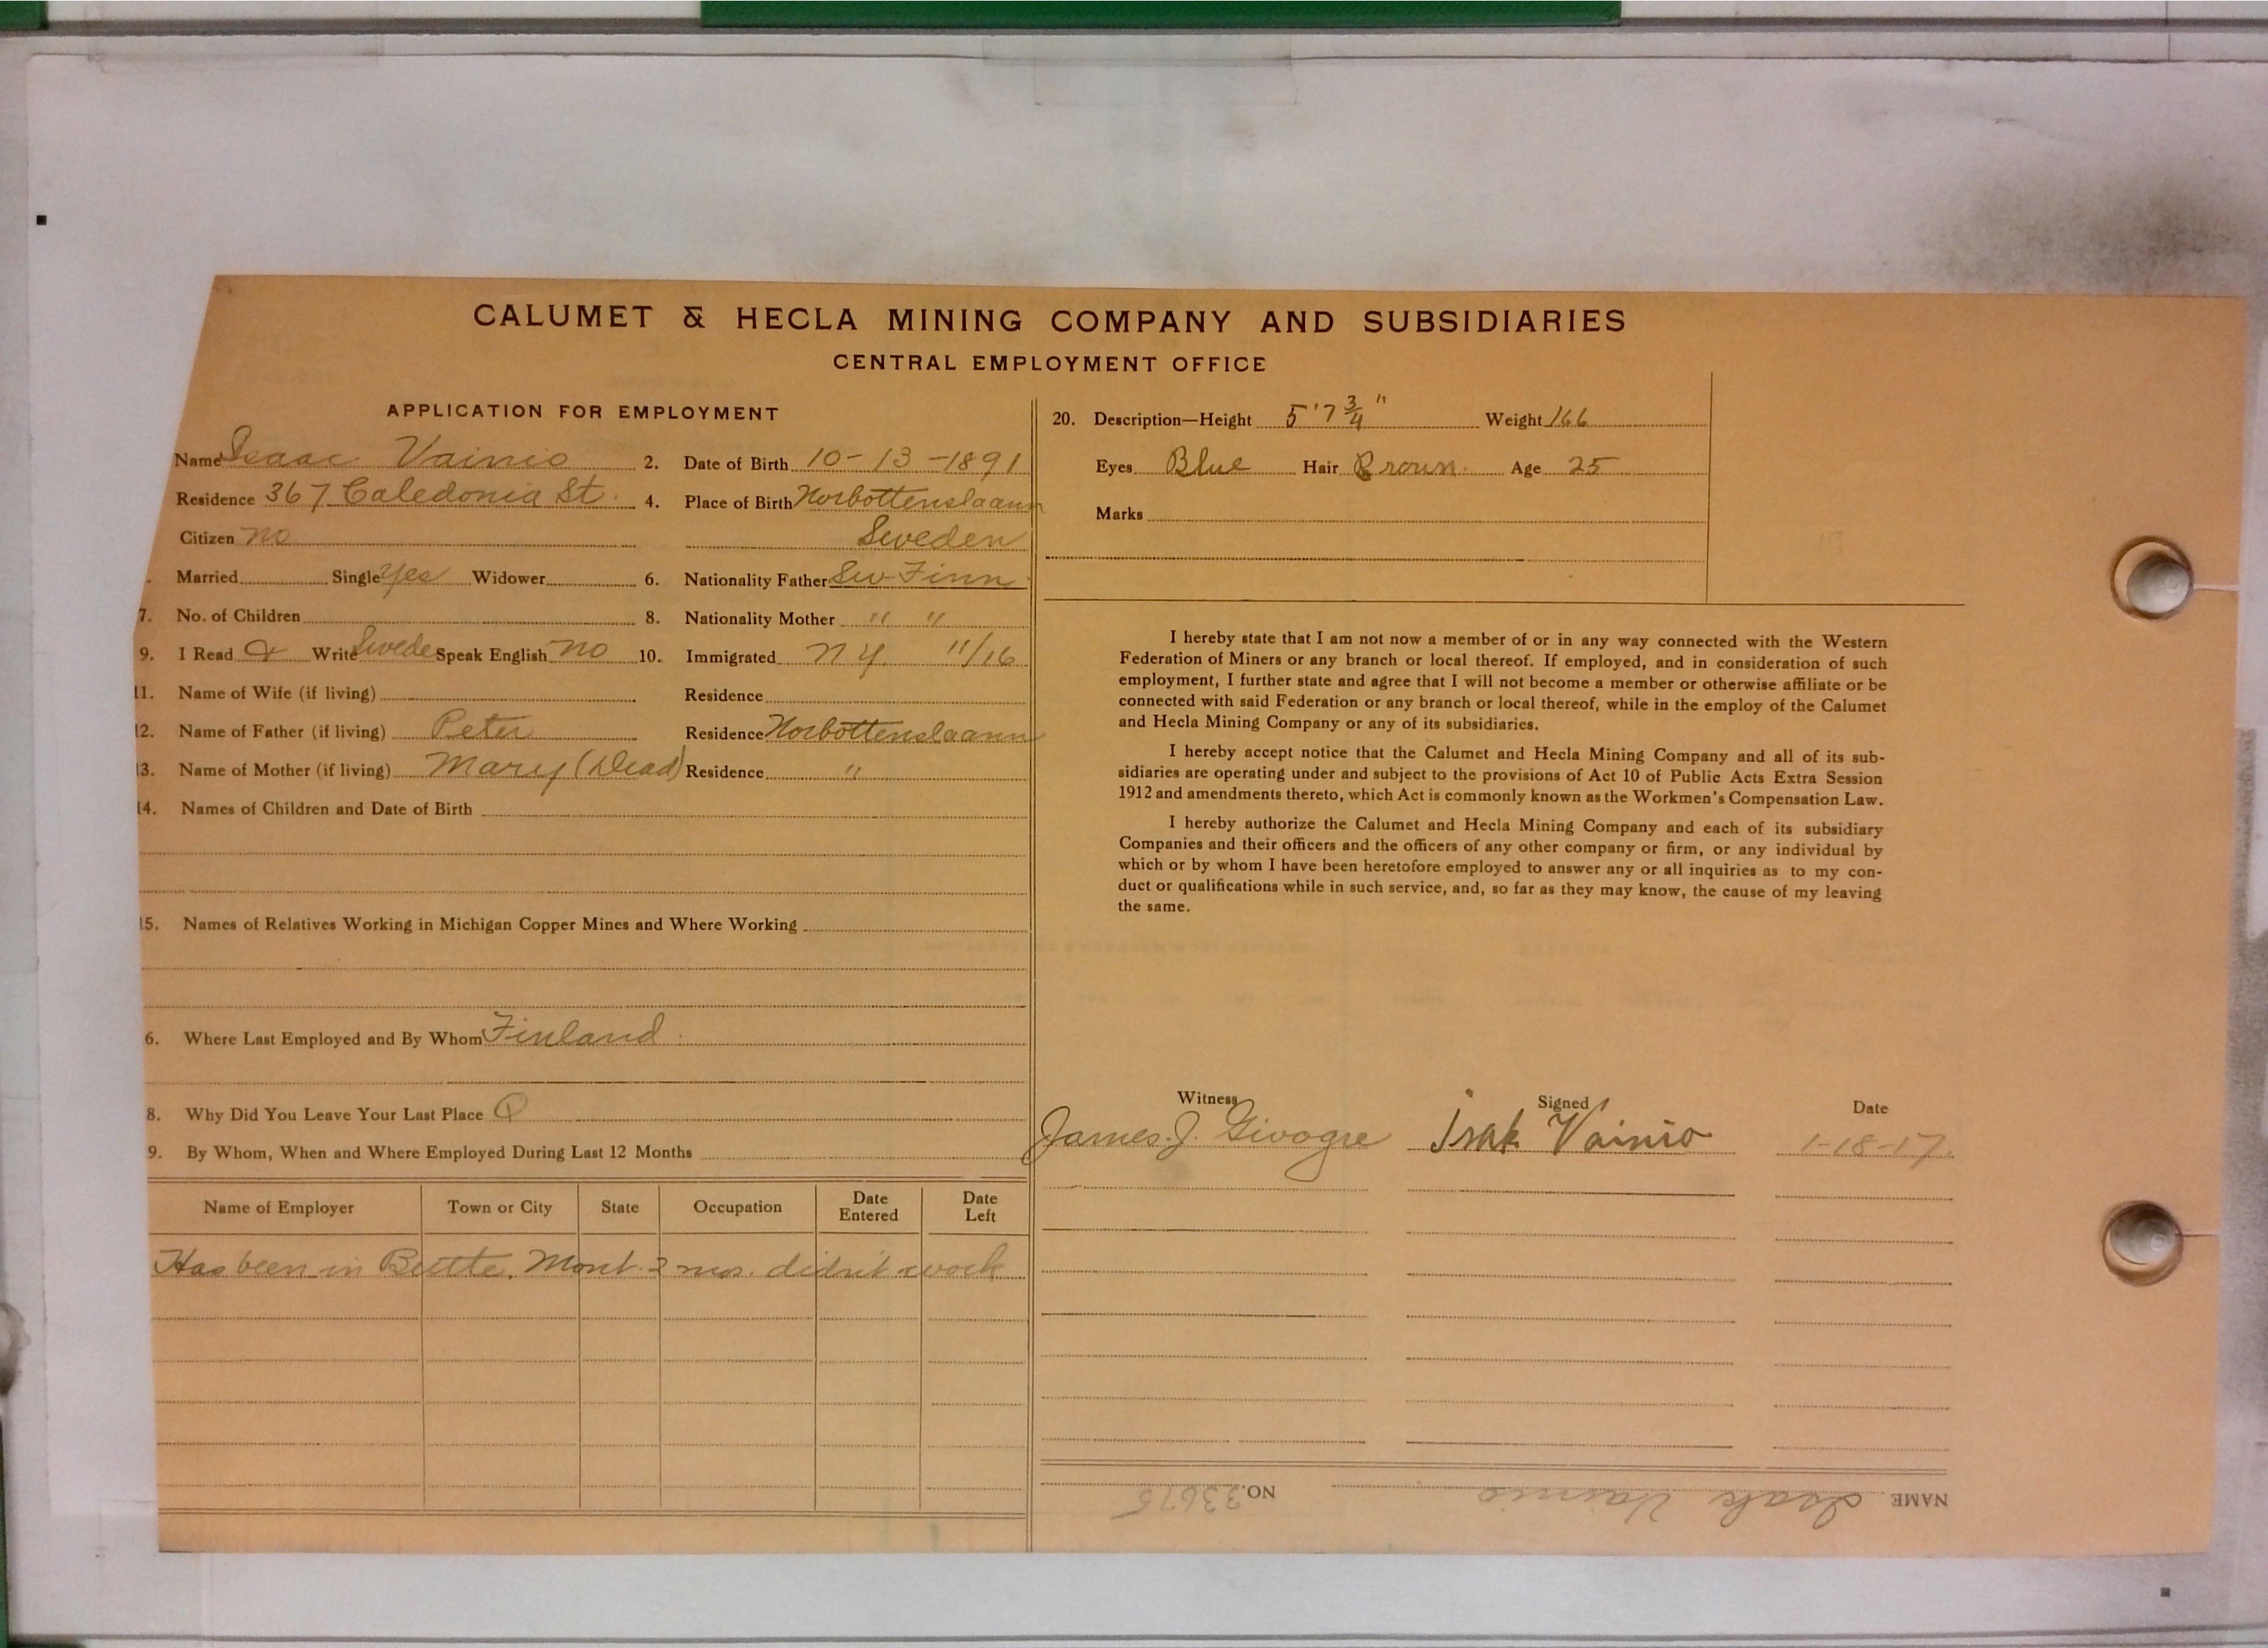 CALUMET & HECLA MINING COMPANY AND SUBSIDIARIES
CENTRAL EMPLOYMENT OFFICE
APPLICATION FOR EMPLOYMENT
Name Isaac Vainio 2. Date of Birth 10-13-1891
Residence 367 Caledonia St. 4. Place of Birth Norbottenslaann
Citizen no Sweden
Married Single yes Widower 6. Nationality Father Sw-Finn
7. No. of Children 8. Nationality Mother " "
9. I Read & Write Swede Speak English no 10. Immigrated N.Y. 11/16
11. Name of Wife (if living) Residence
12. Name of Father (if living) Peter Residence Norbottenslaann
13. Name of Mother (if living) Mary (Dead) Residence "
14. Names of Children and Date of Birth
15. Names of Relatives Working in Michigan Copper Mines and Where Working
6. Where Last Employed and By Whom Finland
8. Why Did You Leave Your Last Place Q
9. By Whom, When and Where Employed During Last 12 Months
Name of Employer Town or City State Occupation Date Entered Date Left
Has been in Butte, Mont. 2 mos. didn't work
20. Description—Height 5'7 3/4" Weight 166
Eyes Blue Hair Brown Age 25
Marks
I hereby state that I am not now a member of or in any way connected with the Western
Federation of Miners or any branch or local thereof. If employed, and in consideration of such
employment, I further state and agree that I will not become a member or otherwise affiliate or be
connected with said Federation or any branch or local thereof, while in the employ of the Calumet
and Hecla Mining Company or any of its subsidiaries.
I hereby accept notice that the Calumet and Hecla Mining Company and all of its sub-
sidiaries are operating under and subject to the provisions of Act 10 of Public Acts Extra Session
1912 and amendments thereto, which Act is commonly known as the Workmen's Compensation Law.
I hereby authorize the Calumet and Hecla Mining Company and each of its subsidiary
Companies and their officers and the officers of any other company or firm, or any individual by
which or by whom I have been heretofore employed to answer any or all inquiries as to my con-
duct or qualifications while in such service, and, so far as they may know, the cause of my leaving
the same.
Witness Signed Date
James J. Isak Vainio 1-18-17.
NAME Isak Vainio NO. 33675